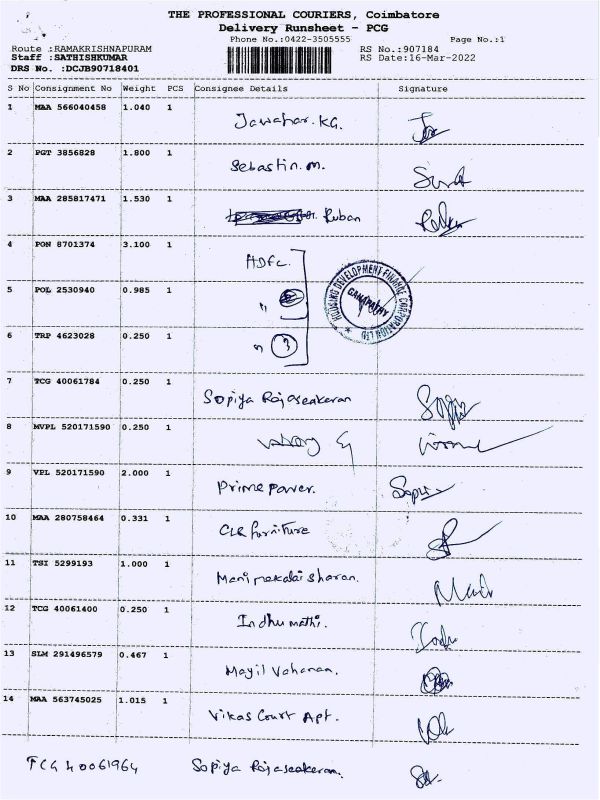 THE PROFESSIONAL COURIERS, Coimbatore
Delivery Runsheet - PCG
Phone No.:0422-3505555 Page No.:1
Route :RAMAKRISHNAPURAM RS No.:907184
Staff :SATHISHKUMAR RS Date:16-Mar-2022
DRS No. :DCJB90718401
S No Consignment No Weight PCS Consignee Details Signature
1 MAA 566040458 1.040 1 Jawahar.KG.
2 PGT 3856828 1.800 1 Sebastin.m.
3 MAA 285817471 1.530 1 Ruban
4 PON 8701374 3.100 1 HDFC.
5 POL 2530940 0.985 1 "
HOUSING DEVELOPMENT FINANCE CORPORATION LTD
GANAPATHY
6 TRP 4623028 0.250 1 " 3
7 TCG 40061784 0.250 1 Sopiya Rajaseakaran
8 MVPL 520171590 0.250 1
9 VPL 520171590 2.000 1 Prime Power.
10 MAA 280758464 0.331 1 CLR furniture
11 TSI 5299193 1.000 1 Manimekalai sharan.
12 TCG 40061400 0.250 1 Indhumathi.
13 SLM 291496579 0.467 1 Mayil Vahanan.
14 MAA 563745025 1.015 1 Vikas Court Apt.
TCG 40061964 Sopiya Rajaseakaran.